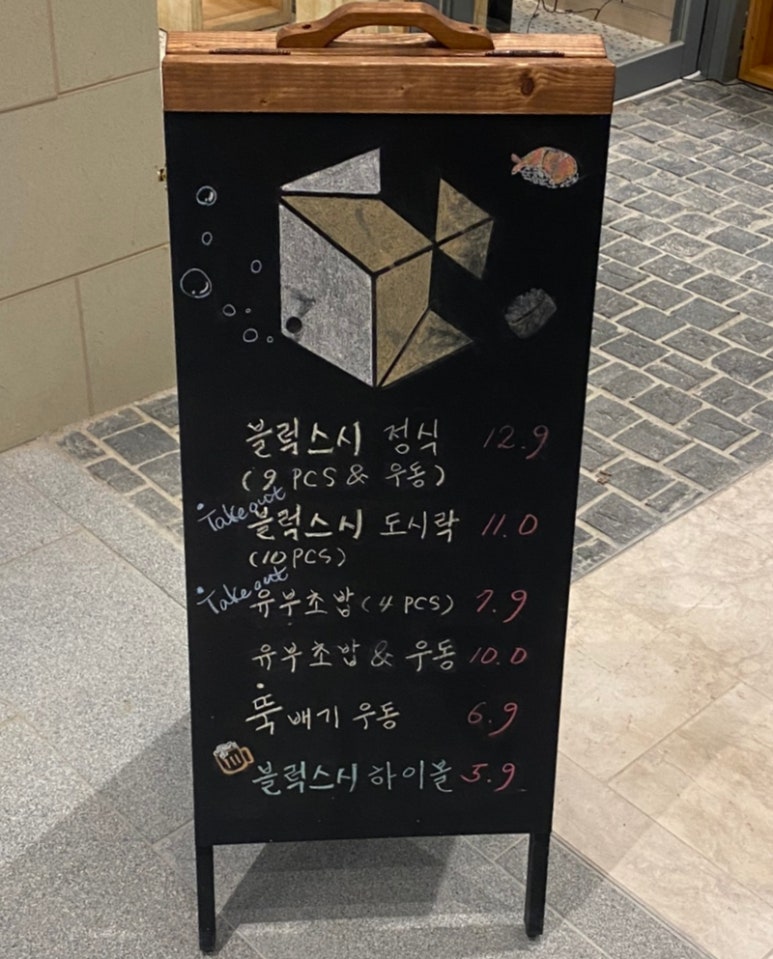 블럭스시 정식 12.9
(9 PCS & 우동)
Takeout
블럭스시 도시락 11.0
(10 PCS)
Takeout
유부초밥 (4 PCS) 7.9
유부초밥 & 우동 10.0
뚝배기 우동 6.9
블럭스시 하이볼 5.9